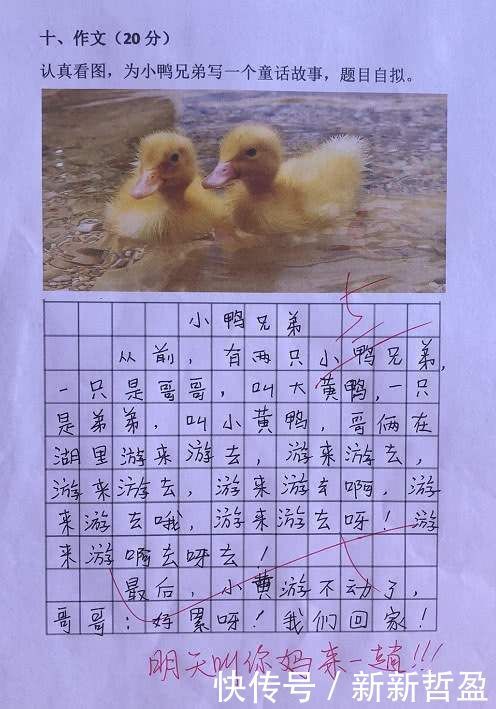 十、作文（20分）
认真看图，为小鸭兄弟写一个童话故事，题目自拟。
小鸭兄弟
从前，有两只小鸭兄弟，
一只是哥哥，叫大黄鸭，一只
是弟弟，叫小黄鸭，哥俩在
湖里游来游去，游来游去，
游来游去，游来游去啊，游
来游去哦，游来游去呀！游
来游啊去呀去！
最后，小黄游不动了，
哥哥：好累呀！我们回家！
明天叫你妈来一趟!!!
快传号 / 新新盈盈